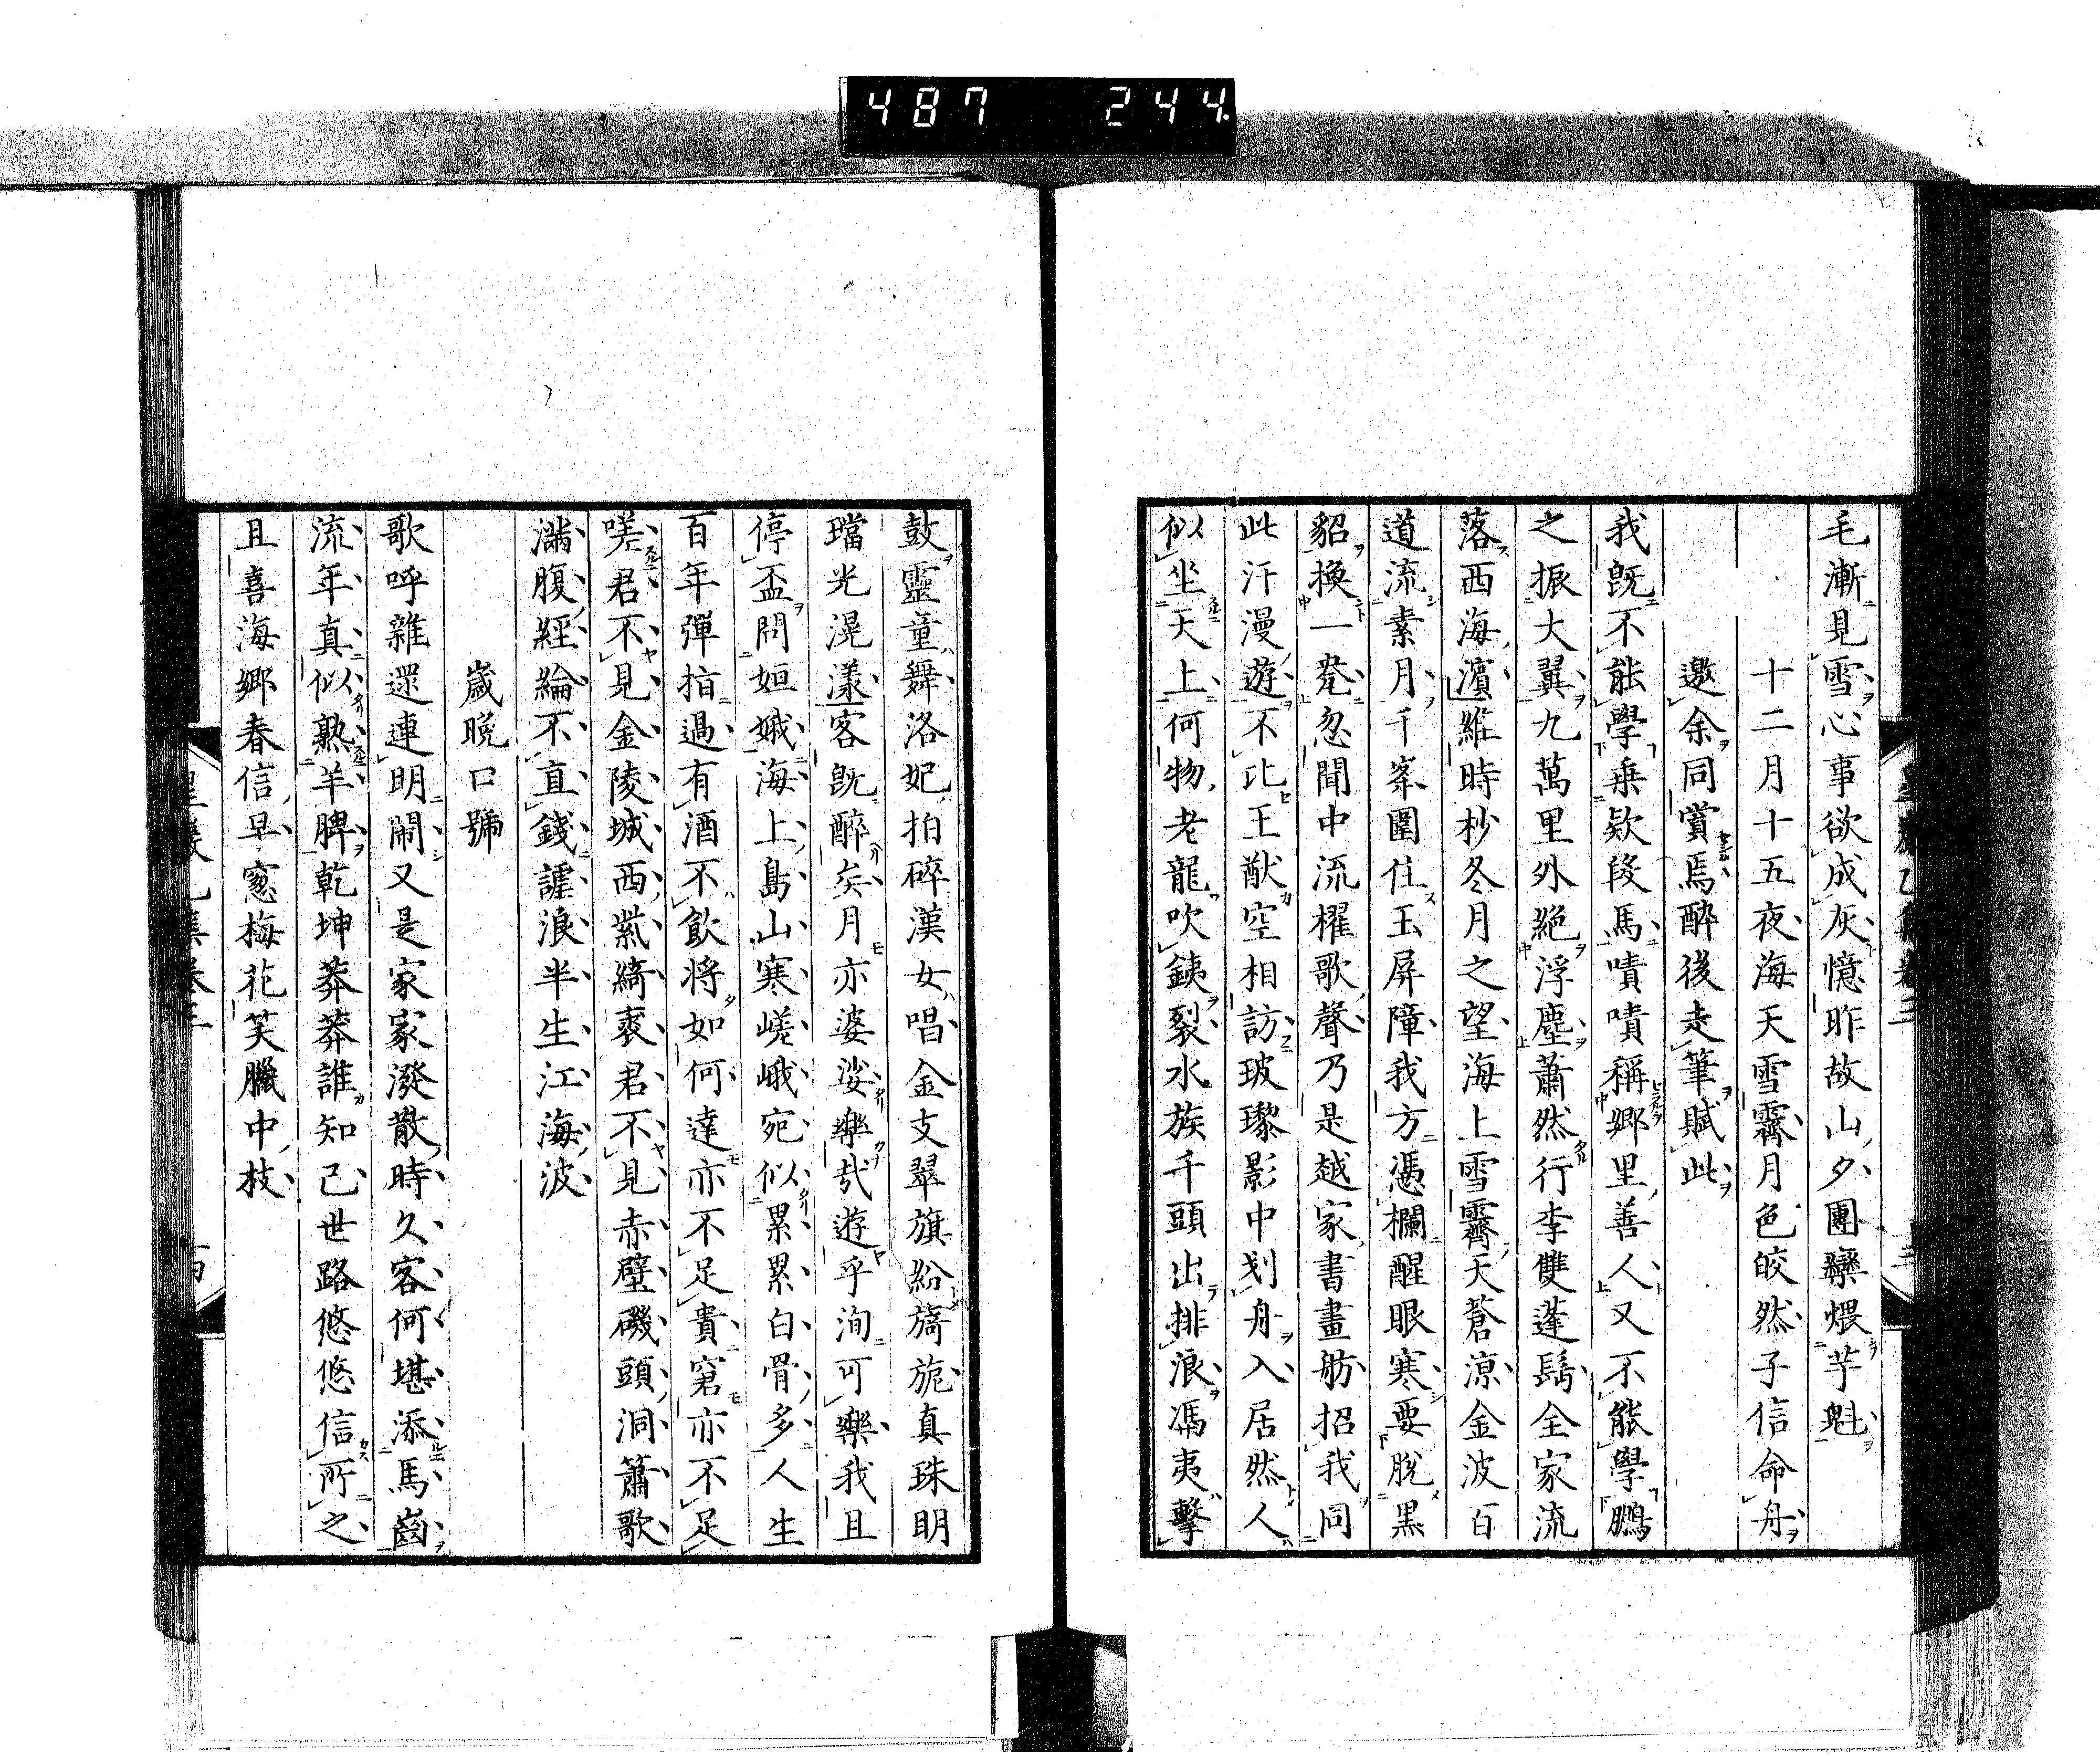 487 244.
毛漸見雪心事欲成灰憶昨故山夕團欒煨芋魁
十二月十五夜海天雪霽月色皎然子信命舟
邀余同賞焉醉後走筆賦此
我既不能學乗欵段馬嘖嘖稱郷里善人又不能學鵬
之振大翼九萬里外絕浮塵蕭然行李雙蓬鬂全家流
落西海濵維時杪冬月之望海上雪霽天蒼凉金波百
道流素月千峯圍住玉屏障我方憑欄醒眼寒要脫黒
貂換一甃忽聞中流櫂歌聲乃是越家書畫舫招我同
此汗漫遊不比王猷空相訪玻瓈影中刬舟入居然人
似坐天上何物老龍吹銕裂水族千頭出排浪馮夷擊
鼓靈童舞洛妃拍碎漢女唱金支翠旗紛旖旎真珠明
璫光滉漾客既醉矣月亦婆娑樂哉遊乎洵可樂我且
停盃問姮娥海上島山寒嵯峨宛似累累白骨多人生
百年彈指過有酒不飲將如何達亦不足貴窘亦不足
嗟君不見金陵城西紫綺裘君不見赤壁磯頭洞簫歌
滿腹經綸不直錢謔浪半生江海波
歲晚口號
歌呼雜遝連明閙又是家家潑散時久客何堪添馬齒
流年真似熟羊脾乾坤莽莽誰知己世路悠悠信所之
且喜海郷春信早窓梅花笑臘中枝